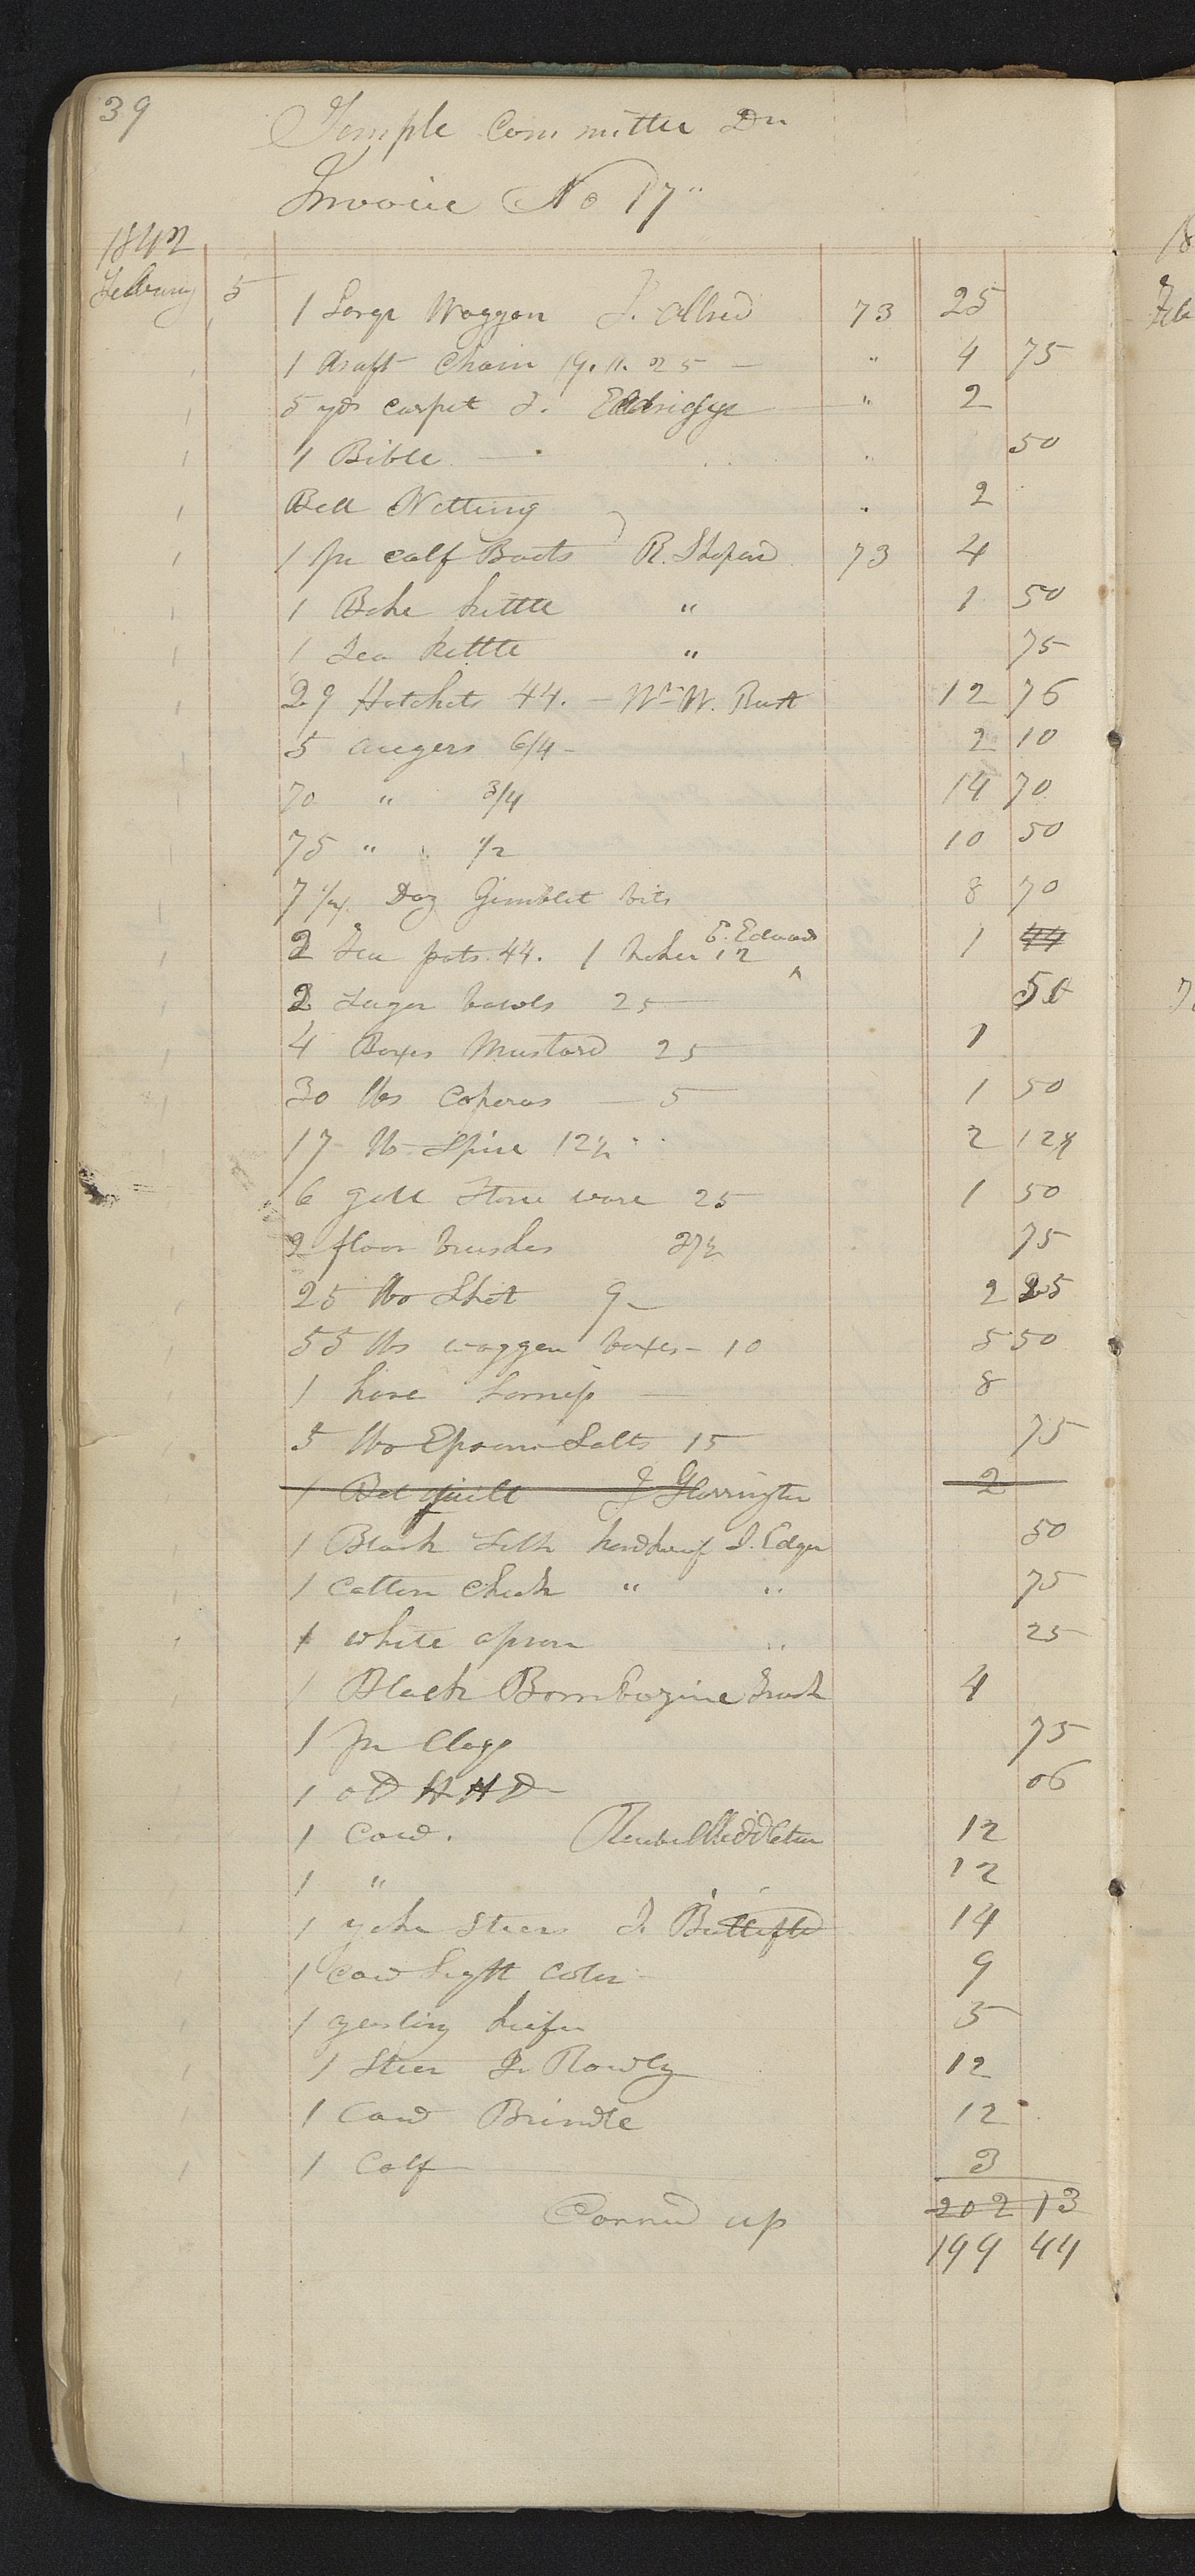 39
Temple Committee Dr
Invoice No 17"
1842
February 5
1 Large Waggon J. Allred 73 25
1 draft chain 19. lb. 25 — " 4 75
5 yds carpet J. Eldridge " 2
1 Bible — " 50
Bell Netting " 2
1 pr calf Boots R. Shepard 73 4
1 Bake kettle " 1 50
1 Tea kettle " 75
29 Hatchets 44. — Wm W. Rust 12 76
5 augers 6/4 - 2 10
70 " 3/4 14 70
75 " 1/2 10 50
7 1/4 Doz Gimblet bits 8 70
2 Tea pots. 44. 1 12 E. Edward 1 44
2 Sugar bowls 25 50
4 Boxes Mustard 25 1
30 lbs Coperas — 5 1 50
17 lb Spice 12½ 2 12½
6 gall Stone ware 25 1 50
2 floor brushes 37½ 75
25 lbs Shot 9 — 2 25
55 lbs waggon boxes - 10 5 50
1 hose 8
5 lbs Epsom Salts 15 75
1 Bed quilt J Harrington 2
1 Black Silk handkerf J. Edger 50
1 Cotton Check " " 75
1 white apron " 25
1 Black Bombazine Frock 4
1 pr Clogs 75
1 oD HHD — 06
1 Cow. Reubel Middleton 12
1 " 12
1 yoke Steers J. 14
1 Cow Light Color - 9
1 yearling heifer 5
1 Steer J. Rowly 12
1 Cow Brindle 12
1 Calf 3
Carried up 202 13
199 44